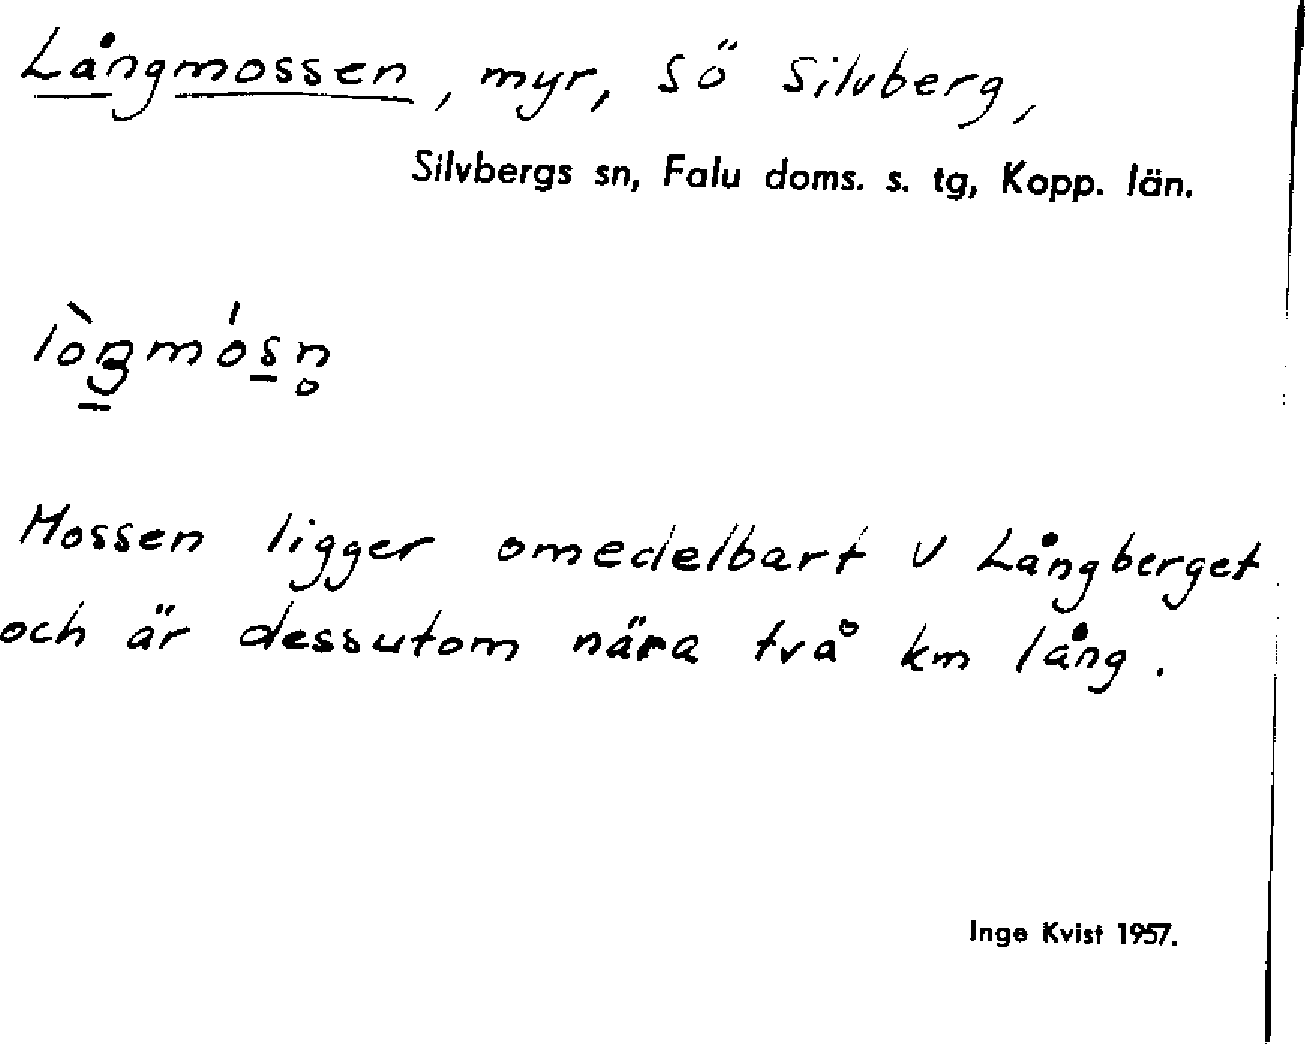 Långmossen, myr, SÖ Silvberg,
Silvbergs sn, Falu doms. s. tg, Kopp. län.
lòŋ̲mós̲n̥
Mossen ligger omedelbart V Långberget
och är dessutom nära två km lång.
Inge Kvist 1957.